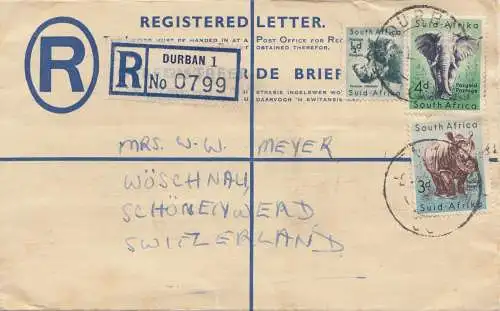 REGISTERED LETTER.
MUST BE HANDED IN AT A POST OFFICE FOR
OBTAINED THEREFOR.
R
R
DURBAN 1
No 0799
DE BRIEF
INGELEWER WO
DAARVOOR 'N KWITANSIE
South Africa
½d
Suid-Afrika
Suid-Afrika
4d
Posgeld
Postage
South Africa
South Africa
3d
Suid-Afrika
MRS. W-W. MEYER
WÖSCHNAU,
SCHÖNENWERD
SWITZERLAND